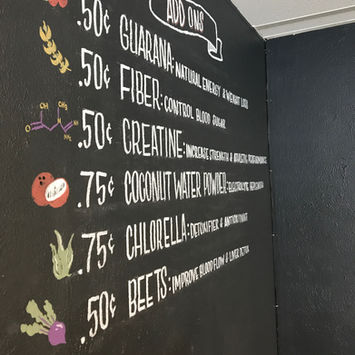 ADD ONS
.50¢ GUARANA: NATURAL ENERGY & WEIGHT LOSS
.50¢ FIBER: CONTROL BLOOD SUGAR
.50¢ CREATINE: INCREASE STRENGTH & ATHLETIC PERFORMANCE
.75¢ COCONUT WATER POWDER: ELECTROLYTE
.75¢ CHLORELLA: DETOXIFIER & ANTIOXIDANT
.50¢ BEETS: IMPROVE BLOOD FLOW & LIVER DETOX
OH
CH₃
O
N
NH₂